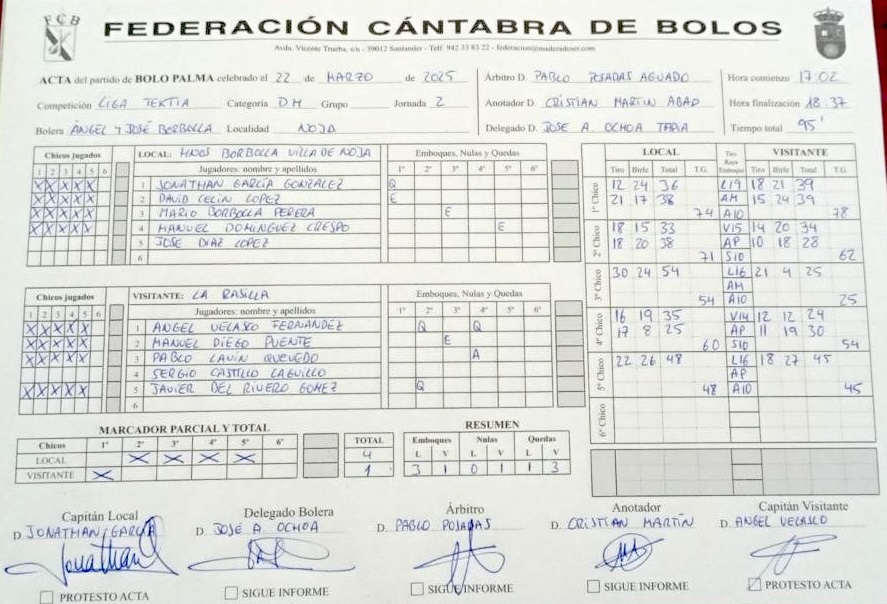 FCB
FEDERACIÓN CÁNTABRA DE BOLOS
Avda. Vicente Trueba, s/n - 39012 Santander - Telf. 942 33 83 22 - federacion@maderadeser.com
ACTA del partido de BOLO PALMA celebrado el 22 de MARZO de 2025 Árbitro D. PABLO POSADAS AGUADO Hora comienzo 17:02
Competición LIGA TEKTIA Categoría DM Grupo Jornada 2 Anotador D. CRISTIAN MARTIN ABAD Hora finalización 18:37
Bolera ÁNGEL Y JOSÉ BORBOLLA Localidad NOJA Delegado D. JOSE A. OCHOA TAPIA Tiempo total 95'
Chicos jugados LOCAL: HNOS BORBOLLA VILLA DE NOJA Emboques, Nulas y Quedas
1 2 3 4 5 6 Jugadores: nombre y apellidos 1º 2º 3º 4º 5º 6º
X X X X X 1 JONATHAN GARCÍA GONZALEZ Q
X X X X X 2 DAVID CECIN LOPEZ E
X X X X X 3 MARIO BORBOLLA PERERA E
X X X X X 4 MANUEL DOMINGUEZ CRESPO E
5 JOSE DIAZ LOPEZ
6
Chicos jugados VISITANTE: LA RASILLA Emboques, Nulas y Quedas
1 2 3 4 5 6 Jugadores: nombre y apellidos 1º 2º 3º 4º 5º 6º
X X X X X 1 ANGEL VELASCO FERNANDEZ Q Q
X X X X X 2 MANUEL DIEGO PUENTE E
X X X X X 3 PABLO LAVIN QUEVEDO A
4 SERGIO CASTILLO LAGUILLO
X X X X X 5 JAVIER DEL RIVERO GOMEZ Q
6
LOCAL Tiro Raya Emboque VISITANTE
Tiro Birle Total T.G. Tiro Birle Total T.G.
1º Chico 12 24 36 L19 18 21 39
21 17 38 AM 15 24 39
74 A10 78
2º Chico 18 15 33 V15 14 20 34
18 20 38 AP 10 18 28
71 S10 62
3º Chico 30 24 54 L16 21 4 25
AM
54 A10 25
4º Chico 16 19 35 V14 12 12 24
17 8 25 AP 11 19 30
60 S10 54
5º Chico 22 26 48 L16 18 27 45
AP
48 A10 45
6º Chico
MARCADOR PARCIAL Y TOTAL
Chicos 1º 2º 3º 4º 5º 6º TOTAL
LOCAL X X X X 4
VISITANTE X 1
RESUMEN
Emboques Nulas Quedas
L V L V L V
3 1 0 1 1 3
Capitán Local Delegado Bolera Árbitro Anotador Capitán Visitante
D. JONATHAN GARCÍA D. JOSE A. OCHOA D. PABLO POSADAS D. CRISTIAN MARTÍN D. ANGEL VELASCO
Jonathan
PROTESTO ACTA SIGUE INFORME SIGUE INFORME SIGUE INFORME PROTESTO ACTA